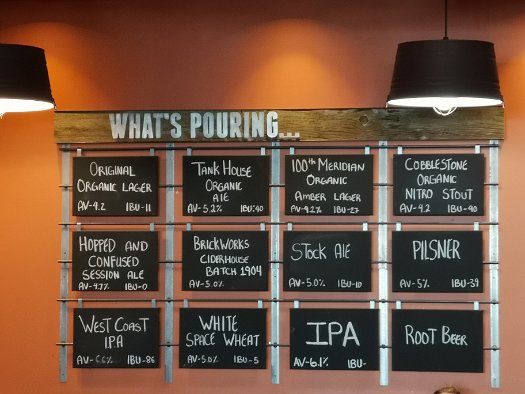 WHAT'S POURING...
ORIGINAL
ORGANIC LAGER
AV-4.2 IBU-11
TANK HOUSE
ORGANIC
ALE
AV-5.2% IBU:40
100th MERIDIAN
ORGANIC
AMBER LAGER
AV-4.2% IBU-27
COBBLESTONE
ORGANIC
NITRO STOUT
AV-4.2 IBU-40
HOPPED AND
CONFUSED
SESSION ALE
AV-4.7% IBU-0
BRICKWORKS
CIDERHOUSE
BATCH 1904
AV-5.0%
STOCK ALE
AV-5.0% IBU-10
PILSNER
AV-5% IBU-39
WEST COAST
I.P.A
AV-6.6% IBU-86
WHITE
SPACE WHEAT
AV-5.0% IBU-5
IPA
AV-6.1% IBU-
ROOT BEER